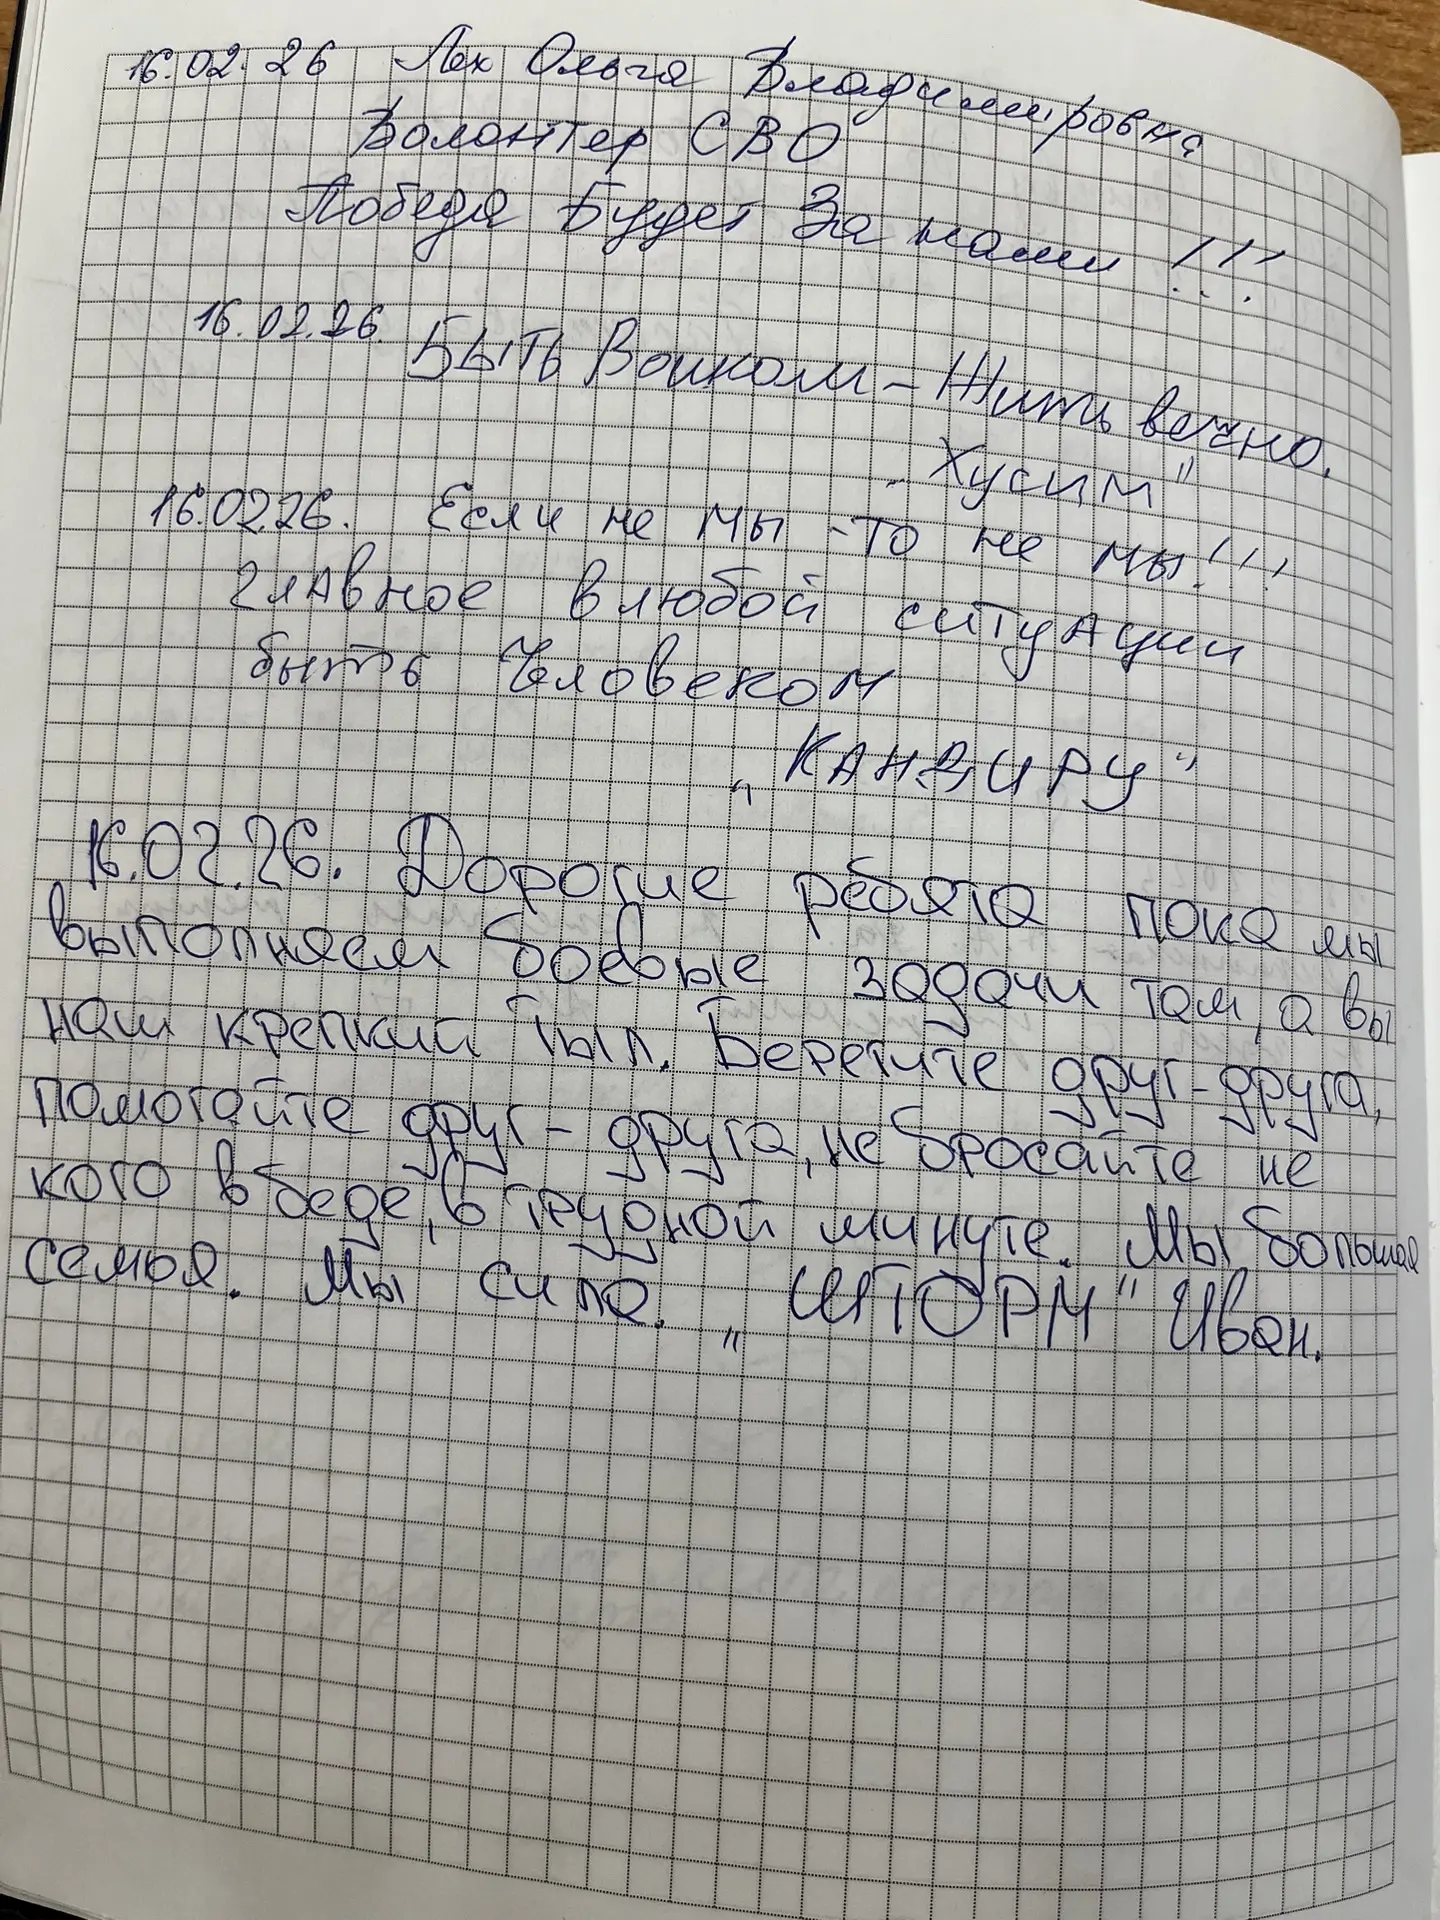 16.02.26 Лех Ольга Владимировна
Волонтер СВО
Победа Будет За нами !!!
16.02.26. Быть Воином – Жить вечно.
„Хусим"
16.0226. Если не мы -то не мы!!!
главное в любой ситуации
быть Человеком
„КАНДИРУ"
16.02.26. Дорогие ребята пока мы
выполняем боевые задачи там, а вы
наш крепкий тыл. Берегите друг-друга,
помогайте друг-друга, не бросайте не
кого в беде, в трудной минуте. Мы большая
семья. Мы сила. „ШТОРМ" Иван.